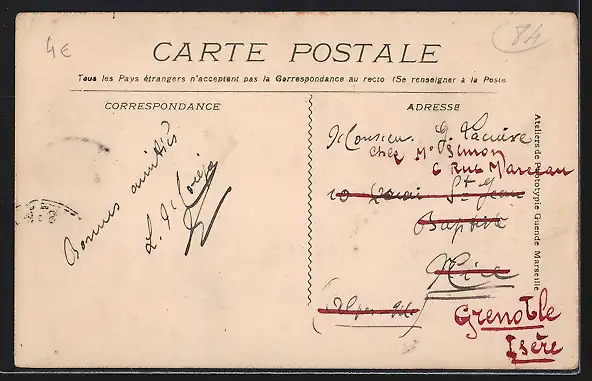 4€
84
CARTE POSTALE
Tous les Pays étrangers n'acceptent pas la Correspondance au recto (Se renseigner à la Poste
CORRESPONDANCE
Bonnes amitiés
L.
ADRESSE
Monsieur G.
chez Mr Simon
6 Rue Marceau
10 Quai St Jean
Baptiste
Nice
(Alpes-Mmes)
Grenoble
Isère
Ateliers de Phototypie Guende Marseille